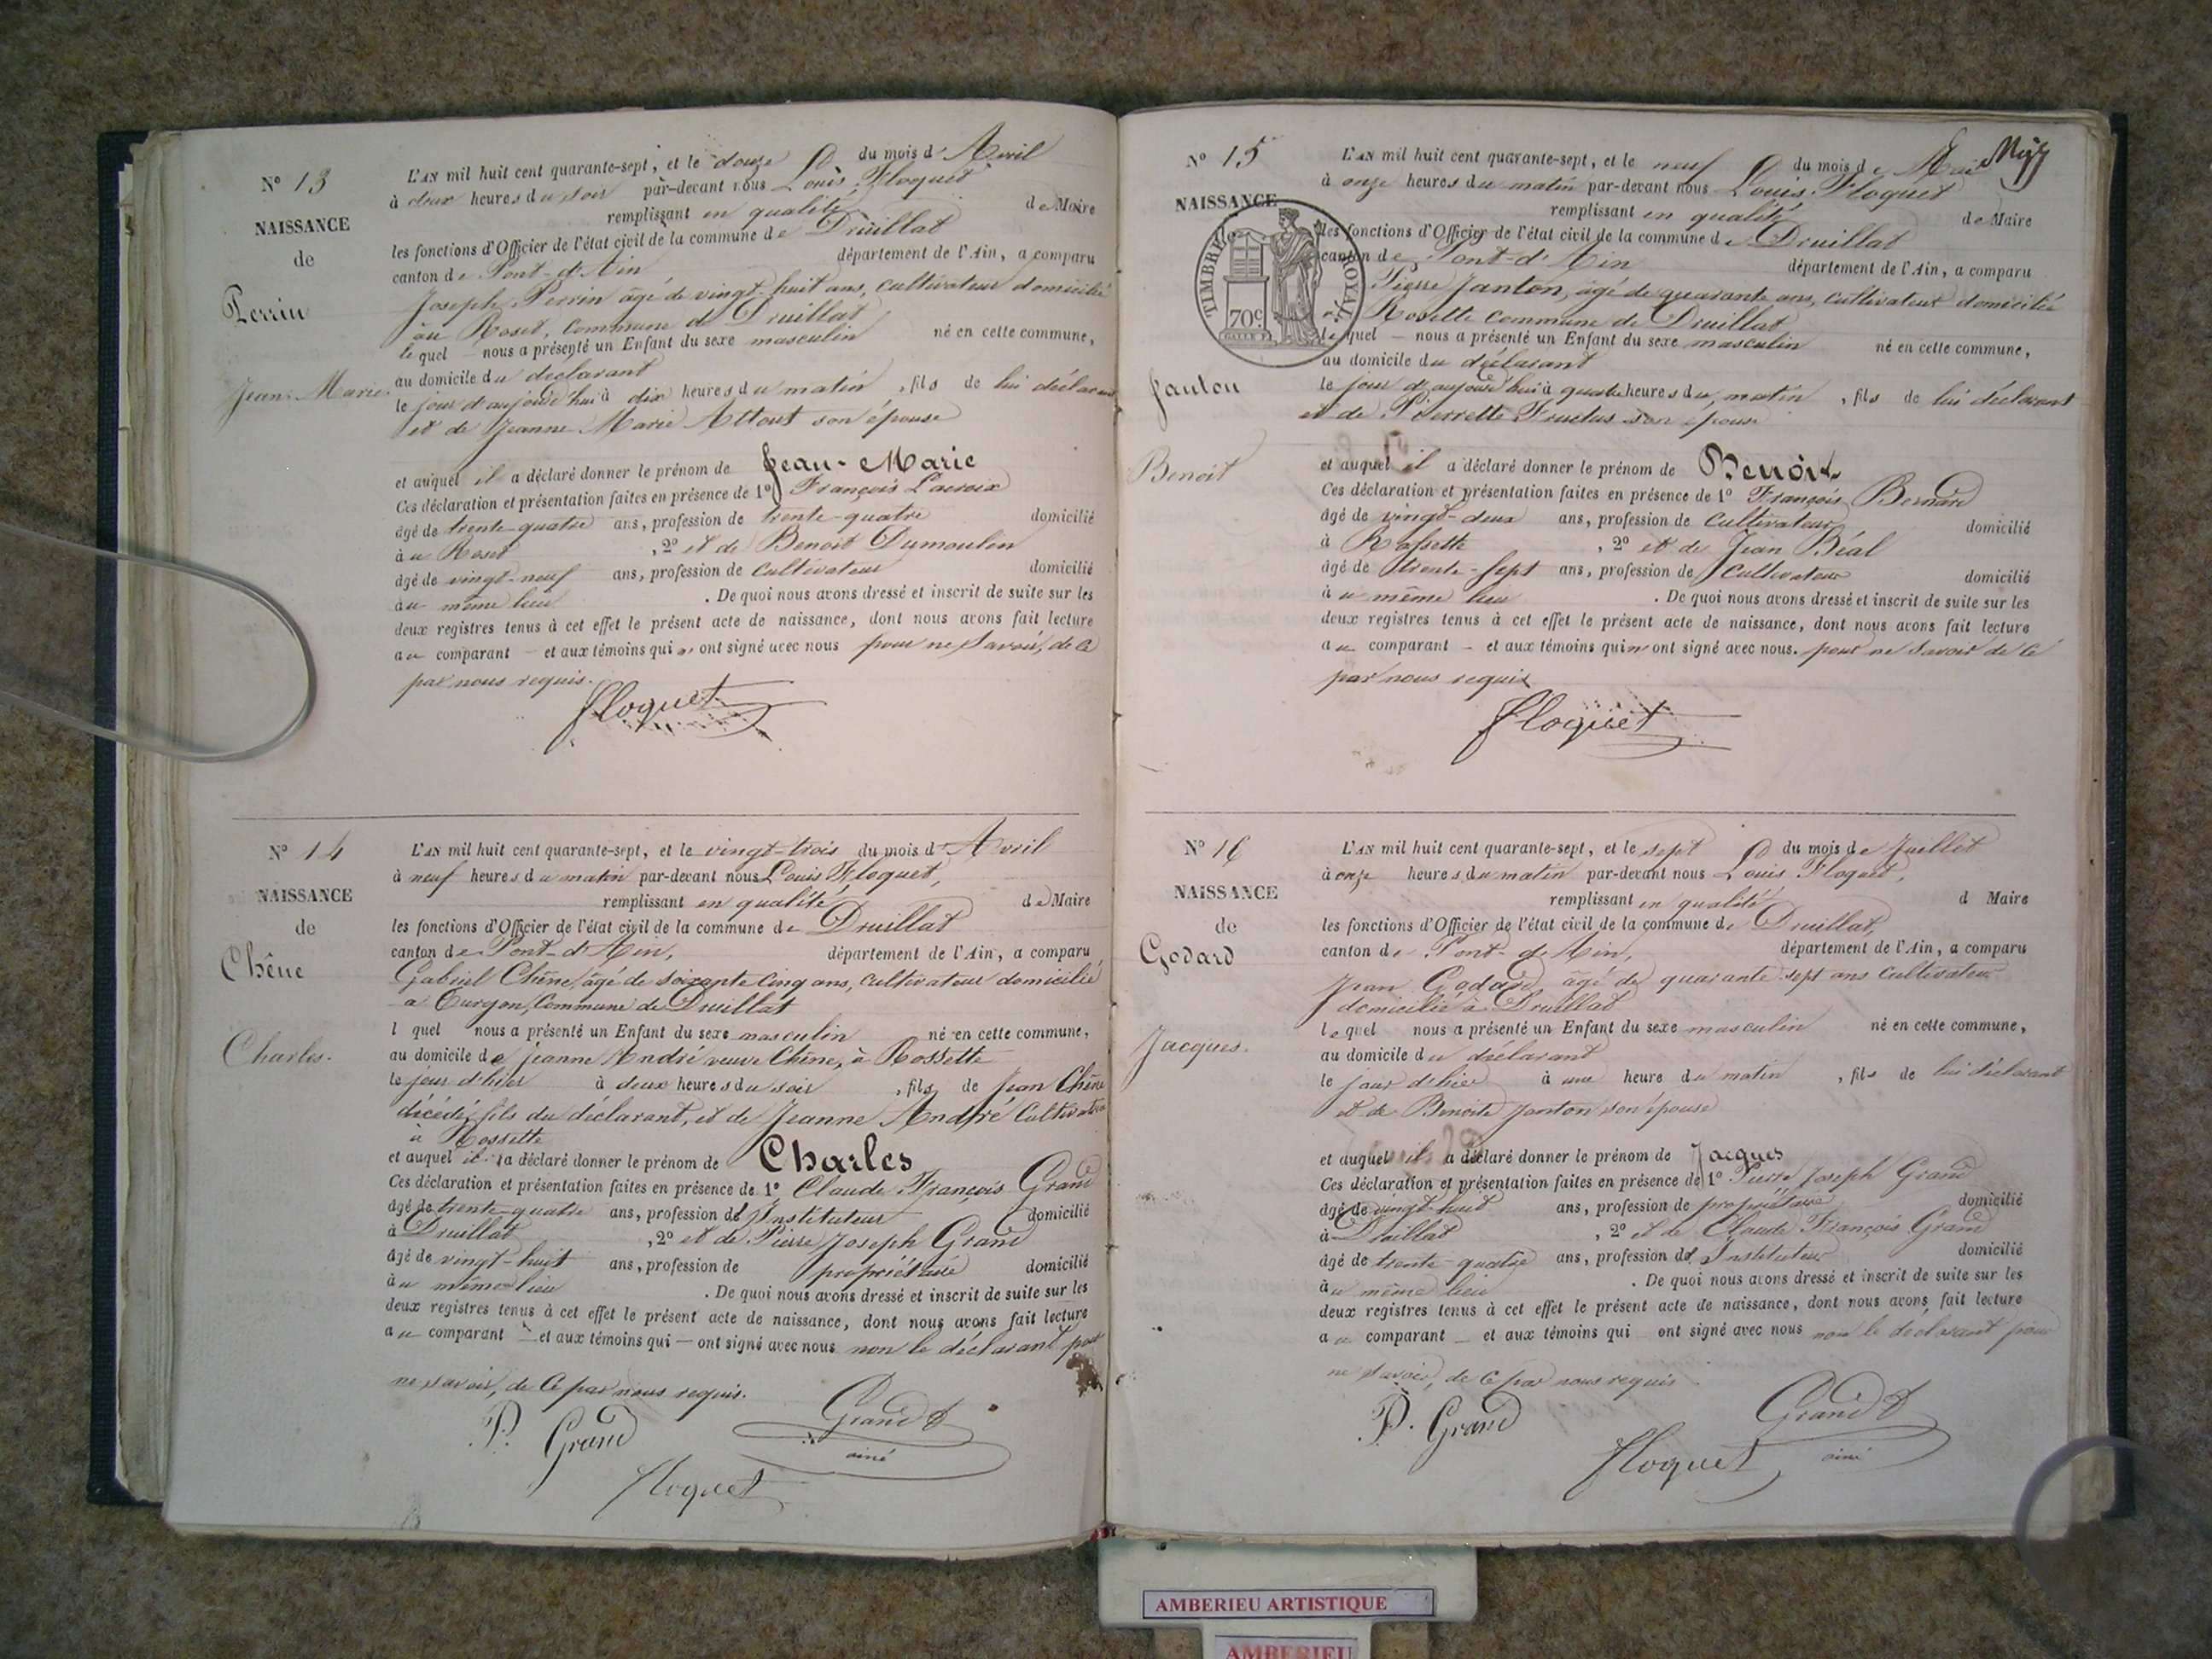 N° 13
NAISSANCE
de
Perrin
Jean-Marie.
L'AN mil huit cent quarante-sept, et le douze du mois d'Avril
à deux heures du soir par-devant nous Louis Floquet
remplissant en qualité de Maire
les fonctions d'Officier de l'état civil de la commune de Druillat
canton de Pont-d'Ain département de l'Ain, a comparu
Joseph Perrin âgé de vingt-huit ans, cultivateur domicilié
au Roset, commune de Druillat
le quel nous a présenté un Enfant du sexe masculin né en cette commune,
au domicile du déclarant
le jour d'aujourd'hui à dix heures du matin, fils de lui déclarant
et de Jeanne Marie Attout son épouse
et auquel il a déclaré donner le prénom de Jean-Marie
Ces déclaration et présentation faites en présence de 1° François Lacroix
âgé de trente-quatre ans, profession de trente-quatre domicilié
au Roset, 2° et de Benoit Dumoulin
âgé de vingt-neuf ans, profession de cultivateur domicilié
au même lieu. De quoi nous avons dressé et inscrit de suite sur les
deux registres tenus à cet effet le présent acte de naissance, dont nous avons fait lecture
au comparant — et aux témoins qui n'ont signé avec nous pour ne savoir, de ce
par nous requis.
Floquet
N° 14
NAISSANCE
de
Chêne
Charles.
L'AN mil huit cent quarante-sept, et le vingt-trois du mois d'Avril
à neuf heures du matin par-devant nous Louis Floquet,
remplissant en qualité de Maire
les fonctions d'Officier de l'état civil de la commune de Druillat
canton de Pont-d'Ain, département de l'Ain, a comparu
Gabriel Chêne, âgé de soixante cinq ans, cultivateur domicilié
a Turgon, Commune de Druillat
l quel nous a présenté un Enfant du sexe masculin né en cette commune,
au domicile de Jeanne André veuve Chêne, à Rossette
le jour d'hier à deux heures du soir, fils de Jean Chêne
décédé, fils du déclarant, et de Jeanne André Cultivatrice
à Rossette
et auquel il a déclaré donner le prénom de Charles
Ces déclaration et présentation faites en présence de 1° Claude François Grand
âgé de trente-quatre ans, profession d'Instituteur domicilié
à Druillat, 2° et de Pierre Joseph Grand
âgé de vingt-huit ans, profession de propriétaire domicilié
au même lieu. De quoi nous avons dressé et inscrit de suite sur les
deux registres tenus à cet effet le présent acte de naissance, dont nous avons fait lecture
au comparant — et aux témoins qui — ont signé avec nous non le déclarant pour
ne savoir, de ce par nous requis.
P. Grand Grand
ainé
Floquet
N° 15
NAISSANCE
TIMBRE ROYAL
70c
Janton
Benoit
L'AN mil huit cent quarante-sept, et le neuf du mois de Mai
à onze heures du matin par-devant nous Louis Floquet
remplissant en qualité de Maire
les fonctions d'Officier de l'état civil de la commune de Druillat
canton de Pont-d'Ain département de l'Ain, a comparu
Pierre Janton, âgé de quarante ans, cultivateur domicilié
Rosette commune de Druillat
le quel — nous a présenté un Enfant du sexe masculin né en cette commune,
au domicile du déclarant
le jour d'aujourd'hui à quatre heures du matin, fils de lui déclarant
et de Pierrette Fructus son épouse
et auquel il a déclaré donner le prénom de Benoit
Ces déclaration et présentation faites en présence de 1° François Bernard
âgé de vingt-deux ans, profession de Cultivateur domicilié
à Rossette, 2° et de Jean Béal
âgé de trente-sept ans, profession de Cultivateur domicilié
au même lieu. De quoi nous avons dressé et inscrit de suite sur les
deux registres tenus à cet effet le présent acte de naissance, dont nous avons fait lecture
au comparant — et aux témoins qui n'ont signé avec nous. pour ne savoir de ce
par nous requis
Floquet
N° 16
NAISSANCE
de
Godard
Jacques.
L'AN mil huit cent quarante-sept, et le sept du mois de Juillet
à onze heures du matin par-devant nous Louis Floquet,
remplissant en qualité d Maire
les fonctions d'Officier de l'état civil de la commune de Druillat,
canton de Pont-d'Ain, département de l'Ain, a comparu
Jean Godard, âgé de quarante sept ans cultivateur
domicilié à Druillat
le quel nous a présenté un Enfant du sexe masculin né en cette commune,
au domicile du déclarant
le jour d'hier à une heure du matin, fils de lui déclarant
et de Benoite Janton son épouse
et auquel il a déclaré donner le prénom de Jacques
Ces déclaration et présentation faites en présence de 1° Pierre Joseph Grand
âgé de vingt-huit ans, profession de propriétaire domicilié
à Druillat, 2° et de Claude François Grand
âgé de trente-quatre ans, profession d'Instituteur domicilié
au même lieu. De quoi nous avons dressé et inscrit de suite sur les
deux registres tenus à cet effet le présent acte de naissance, dont nous avons fait lecture
au comparant — et aux témoins qui ont signé avec nous non le déclarant pour
ne savoir, de ce par nous requis
P. Grand Grand
ainé
Floquet
AMBERIEU ARTISTIQUE
AMBERIEU